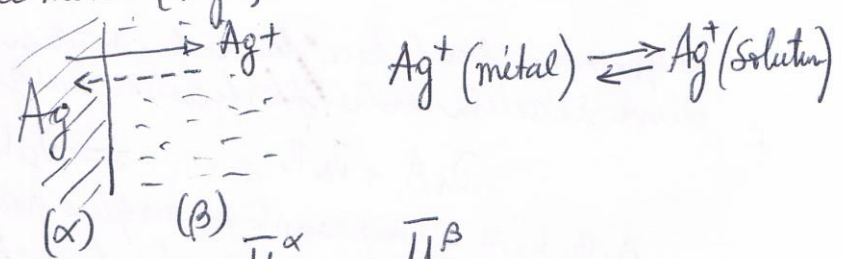 Ag+
Ag+ (métal) ⇌ Ag+ (Solution)
Ag
(α) (β)
μ̄α μ̄β